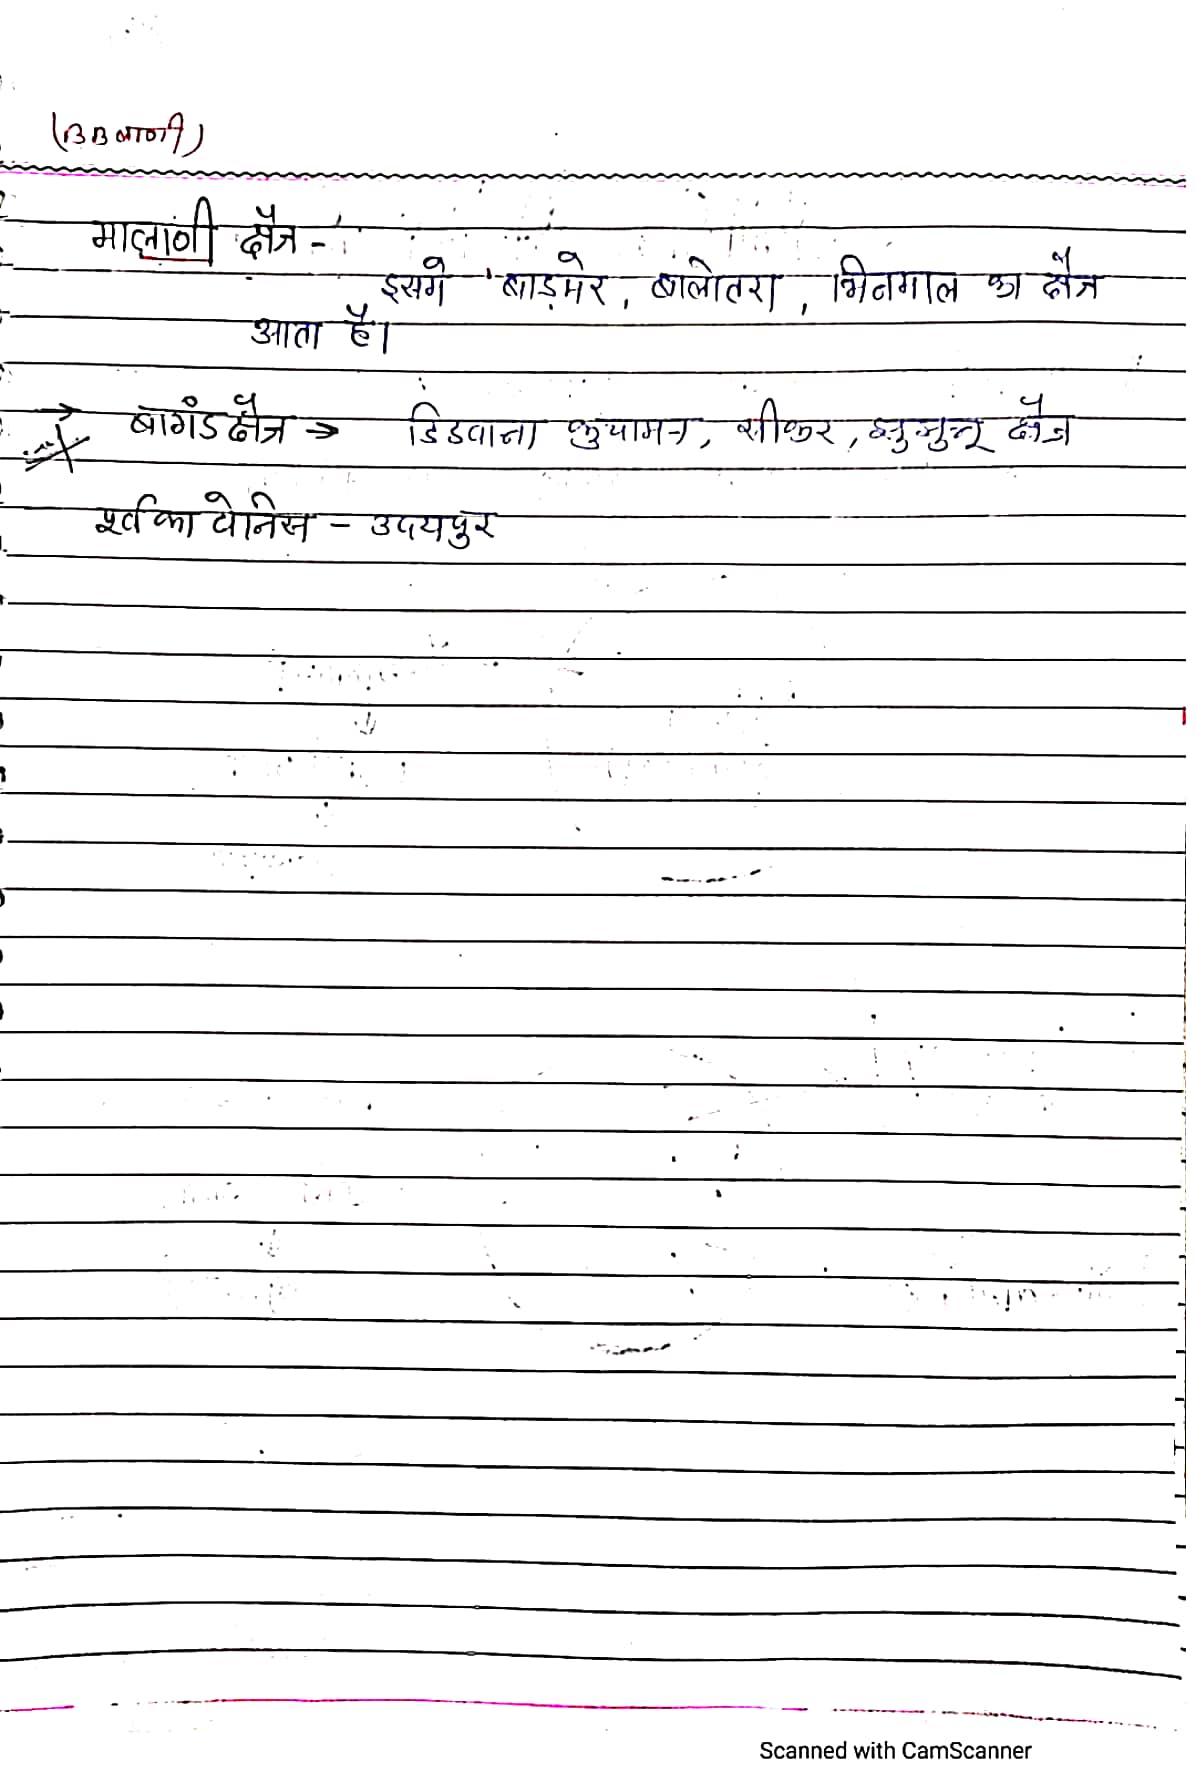 (BB बाणी)
मालाणी क्षैत्र -
इसमे बाड़मेर, बालोतरा, भिनमाल का क्षैत्र
आता है।
→ बागंड क्षैत्र → डिडवाना कुचामन, सीकर, झुन्झुनू क्षैत्र
पूर्व का वेनिस - उदयपुर
Scanned with CamScanner